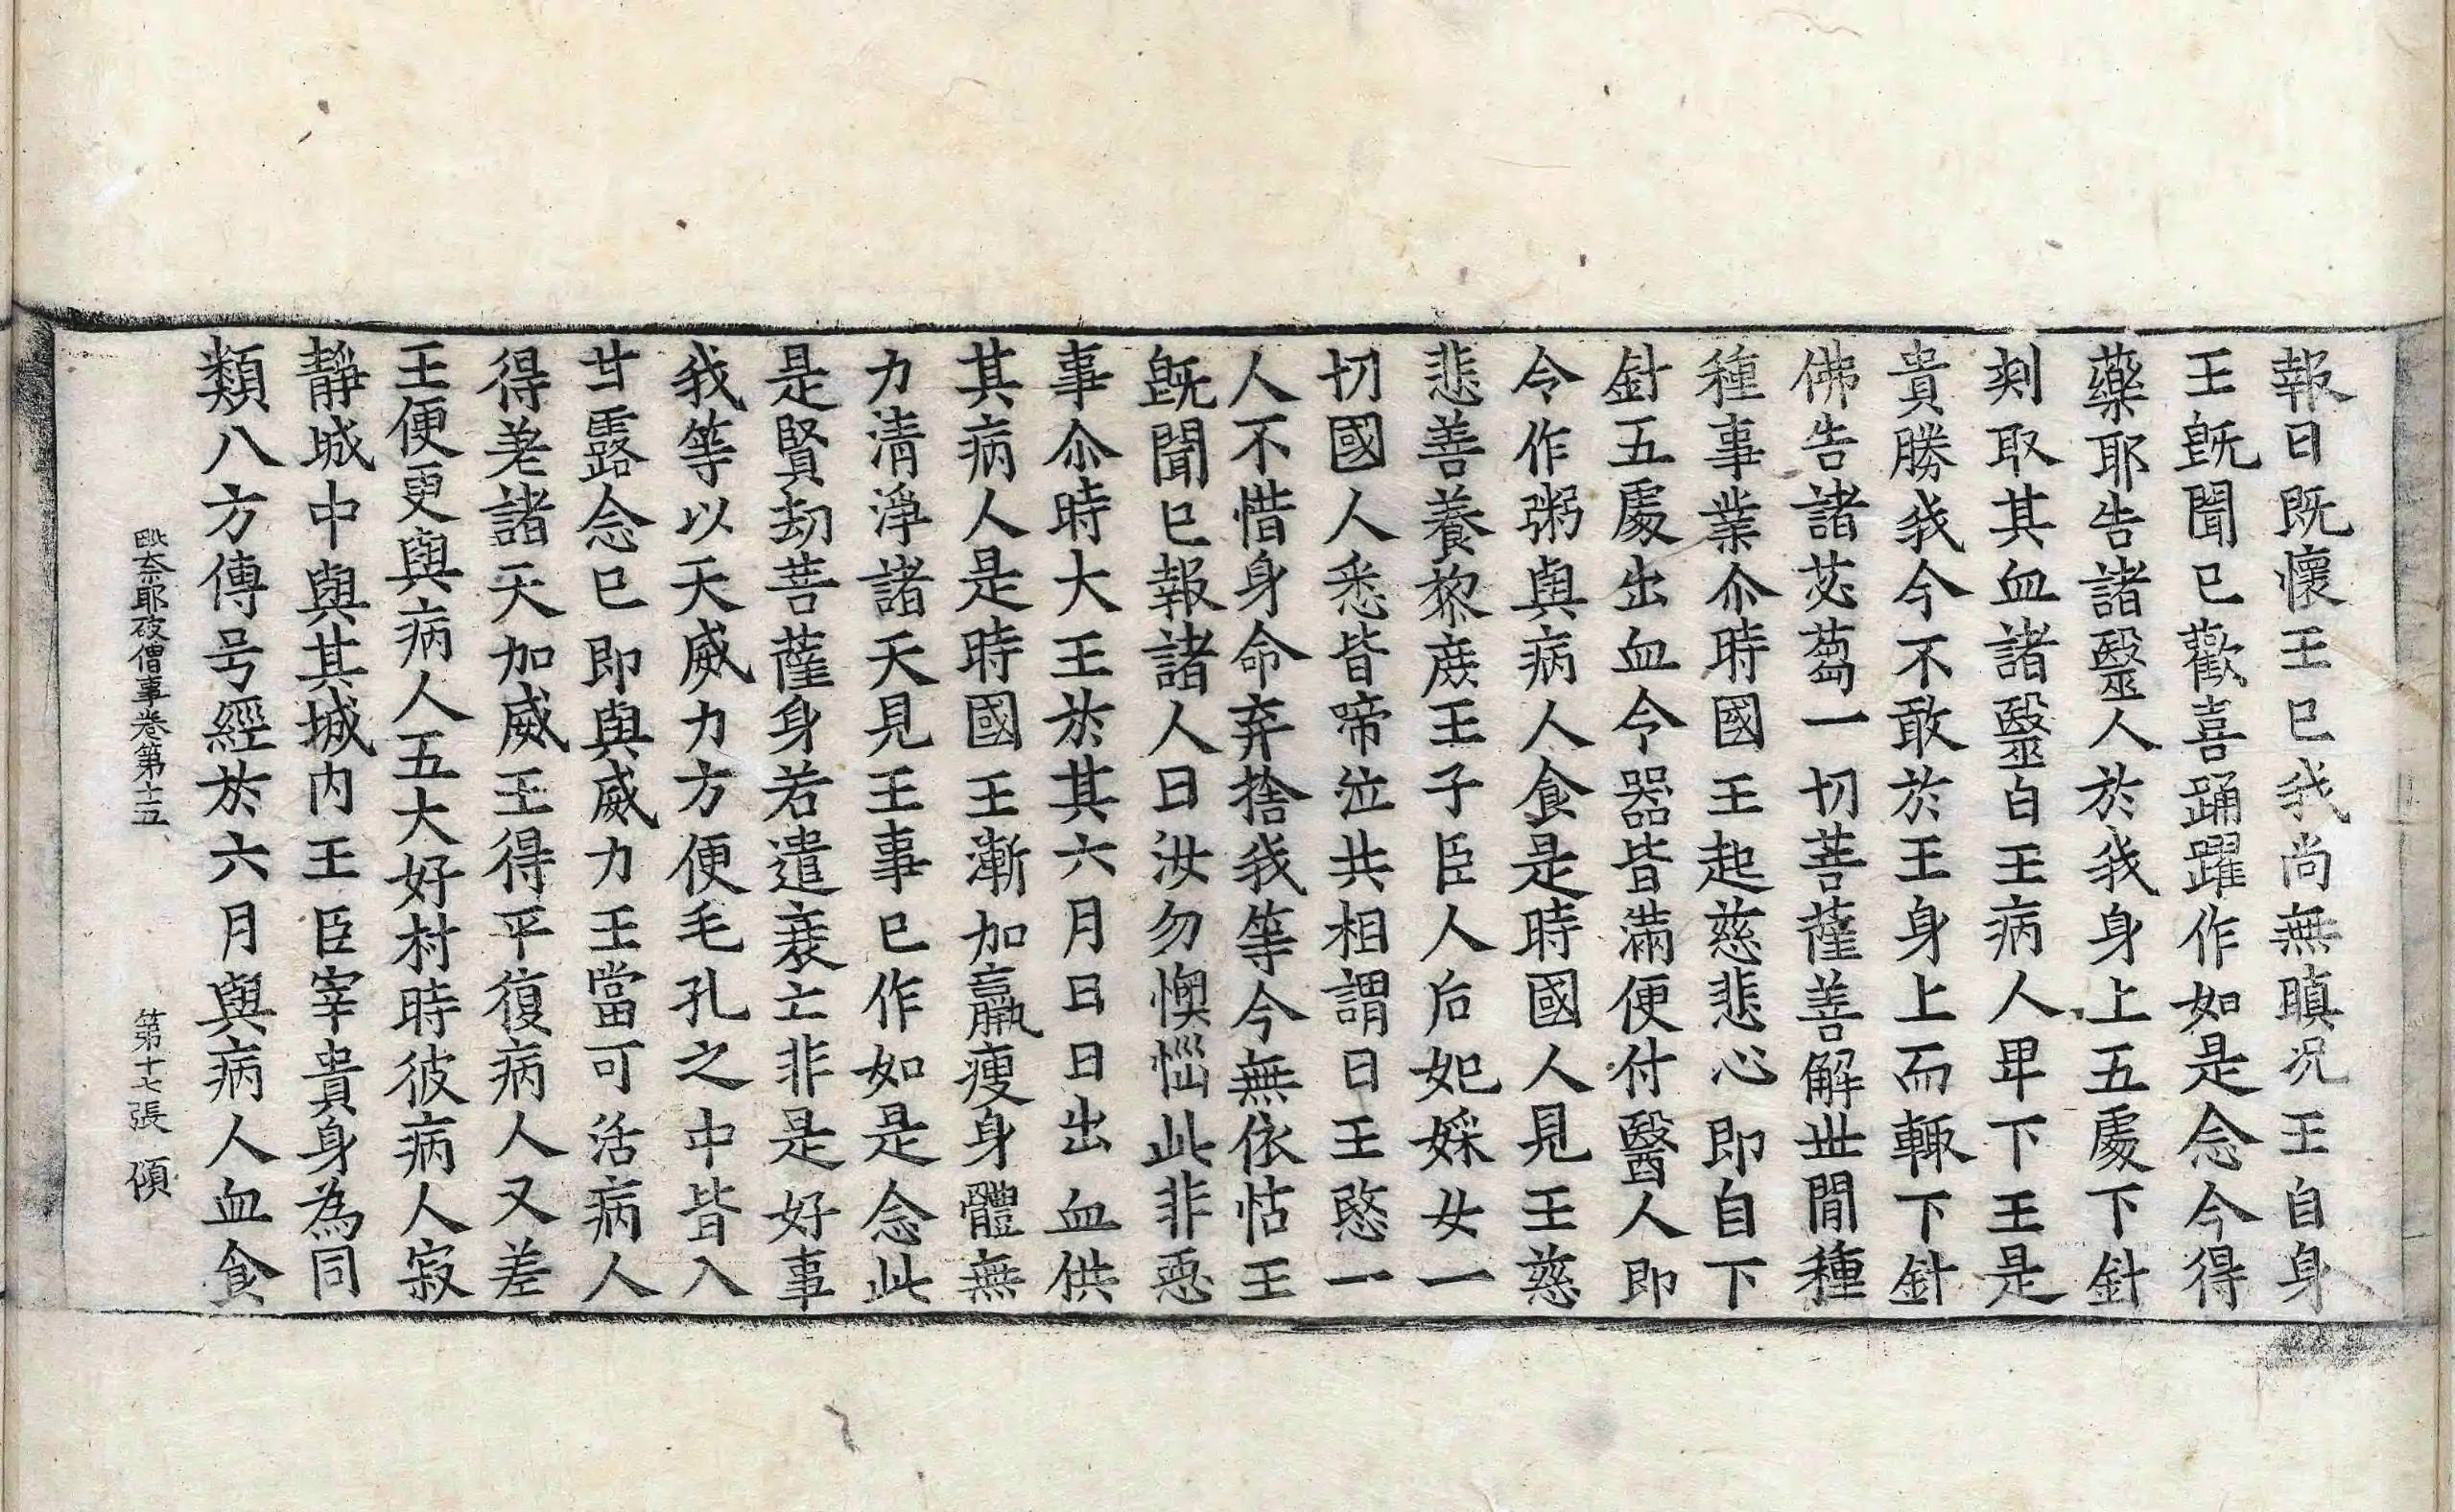 報曰旣懷王已我尚無瞋况王自身
王旣聞已歡喜踊躍作如是念今得
藥耶告諸毉人於我身上五處下針
刾取其血諸毉白王病人卑下王是
貴勝我今不敢於王身上而輙下針
佛告諸苾蒭一切菩薩善解世間種
種事業尒時國王起慈悲心即自下
針五處出血令器皆滿便付醫人即
令作粥與病人食是時國人見王慈
悲善養黎庶王子臣人后妃婇女一
切國人悉皆啼泣共相謂曰王愍一
人不惜身命弃捨我等今無依怙王
旣聞已報諸人曰汝勿懊惱此非惡
事尒時大王於其六月日日出血供
其病人是時國王漸加羸瘦身體無
力清淨諸天見王事已作如是念此
是賢劫菩薩身若遣衰亡非是好事
我等以天威力方便毛孔之中皆入
甘露念已即與威力王當可活病人
得差諸天加威王得平復病人又差
王便更與病人五大好村時彼病人寂
靜城中與其城内王臣宰貴身為同
類八方傳号經於六月與病人血食
毗奈耶破僧事卷第十五 第十七張 傾